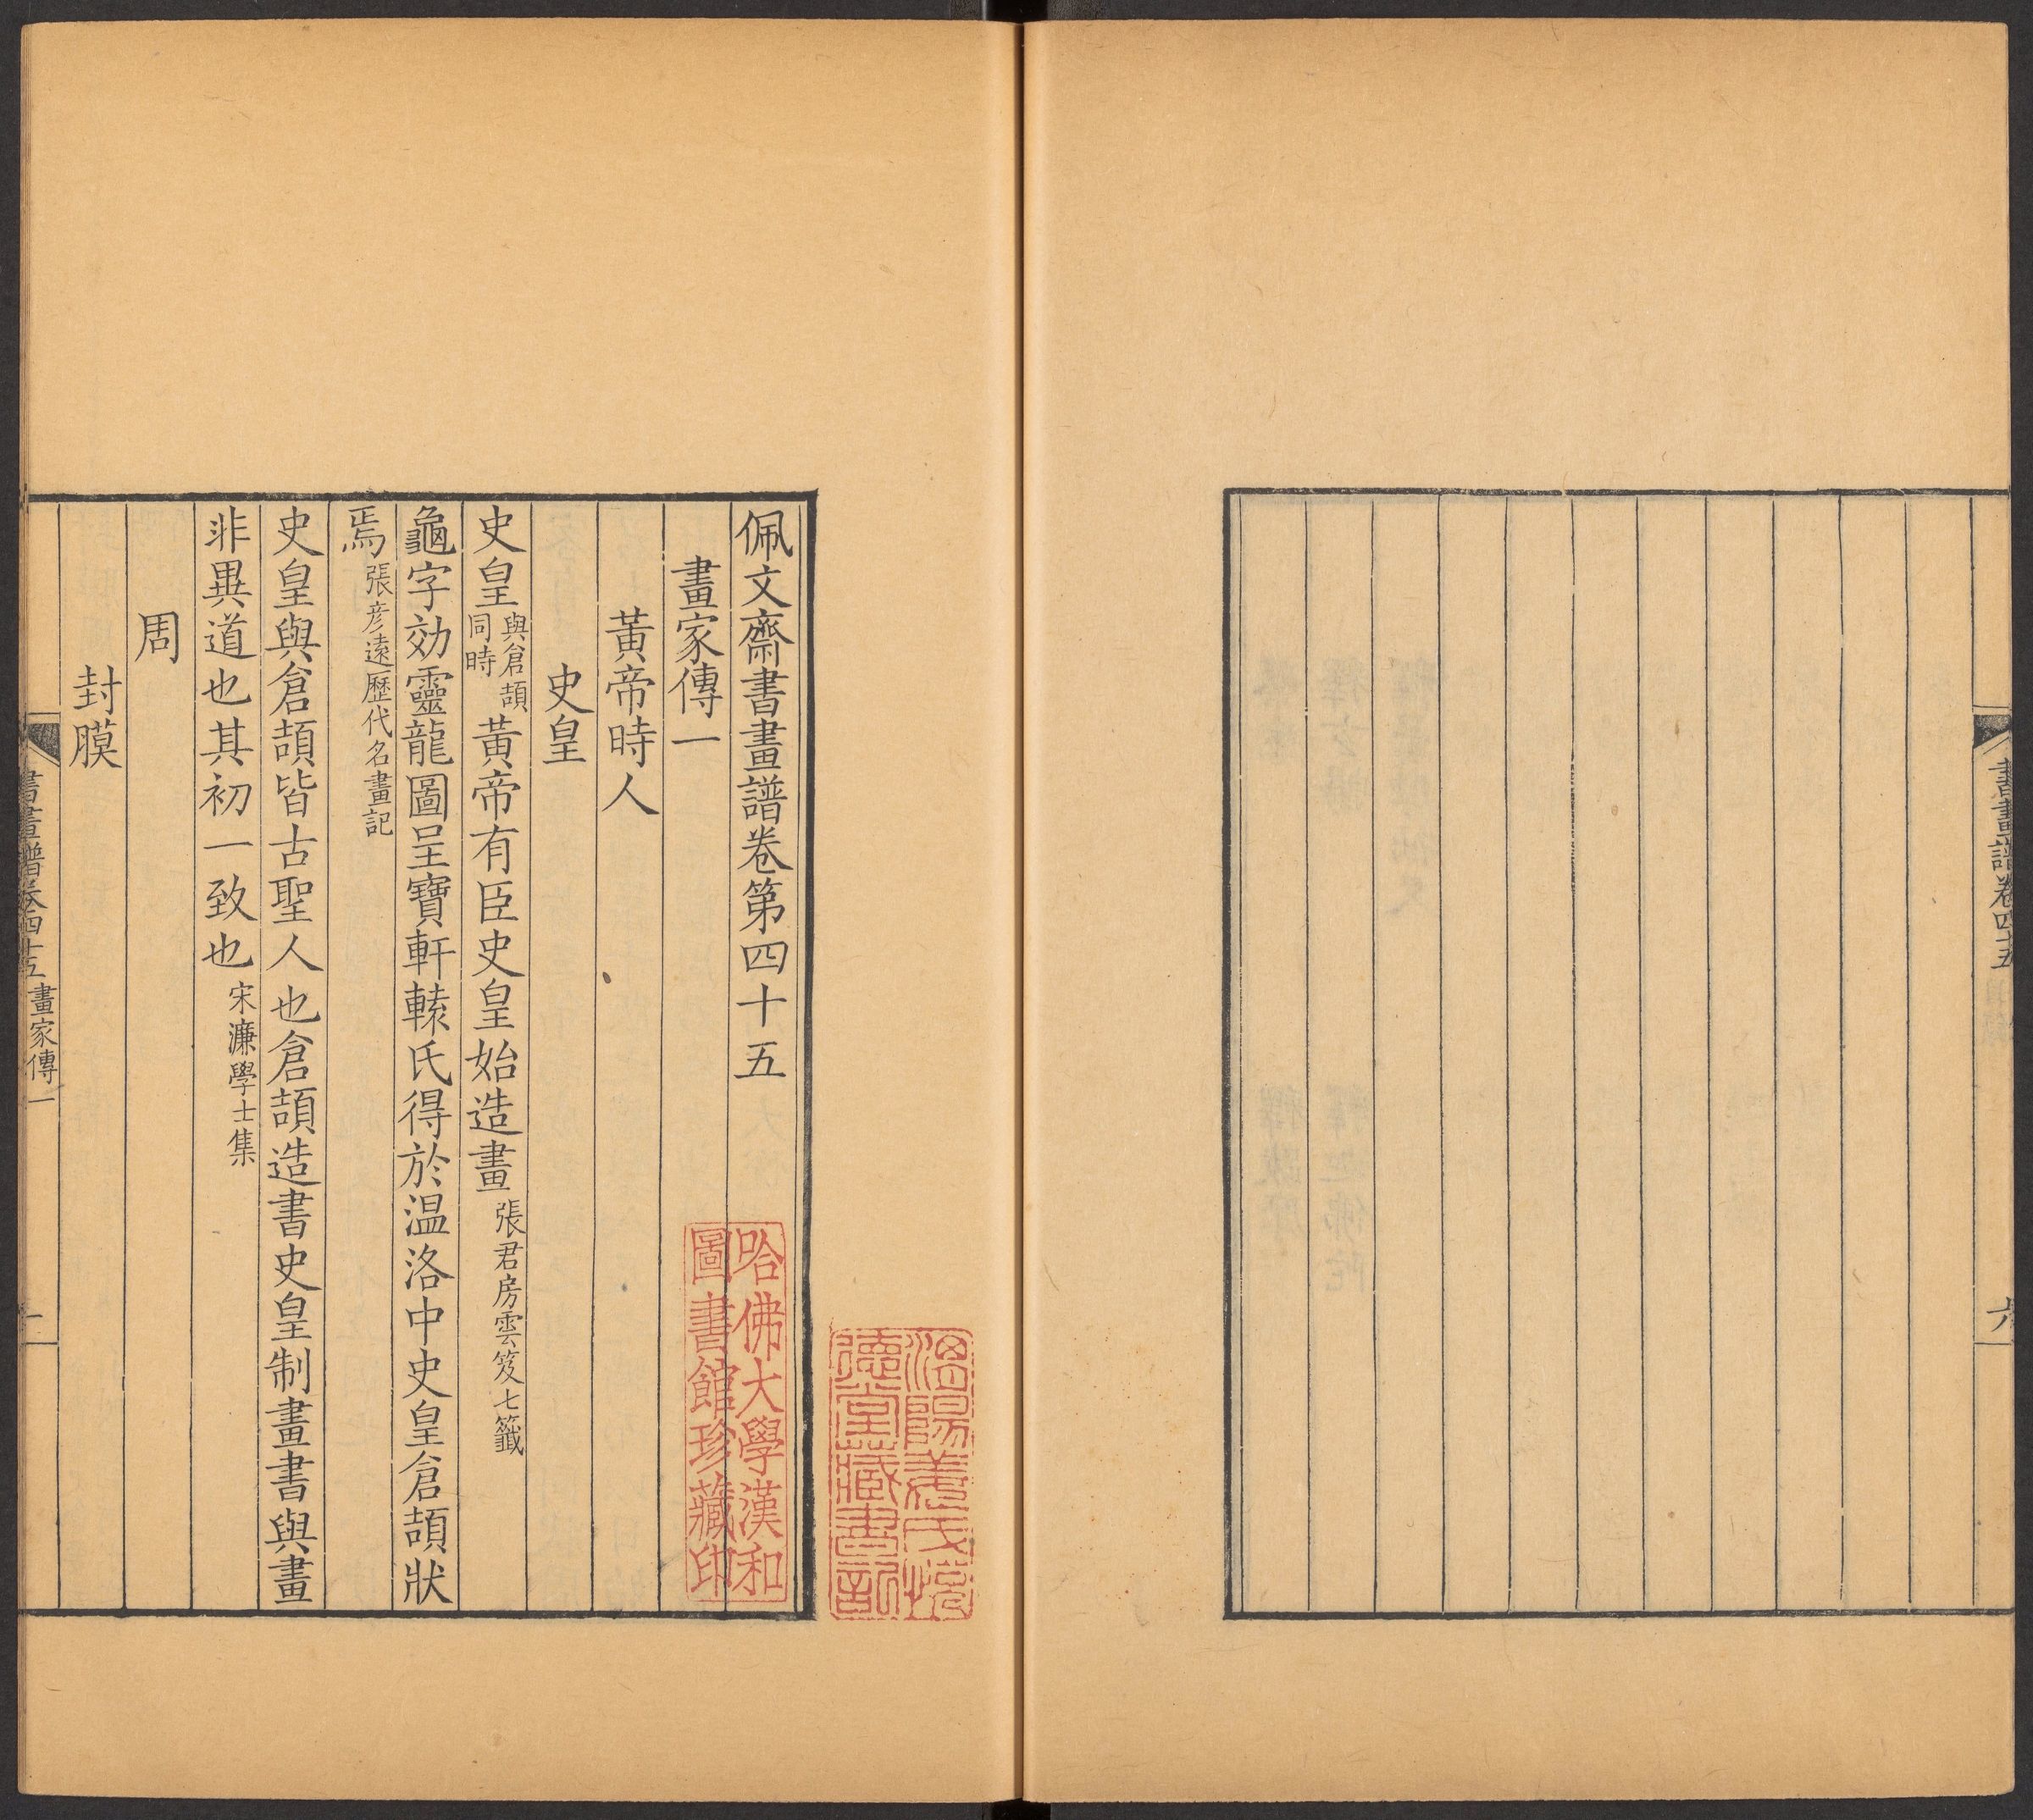 書畫譜卷四十五
六
佩文齋書畫譜卷第四十五
畫家傳一
黃帝時人
史皇
史皇與倉頡同時黃帝有臣史皇始造畫張君房雲笈七籤
龜字効靈龍圖呈寶軒轅氏得於温洛中史皇倉頡狀
焉張彦遠歷代名畫記
史皇與倉頡皆古聖人也倉頡造書史皇制畫書與畫
非異道也其初一致也宋濂學士集
周
封膜
書畫譜卷四十五 畫家傳一
一
哈佛大學漢和
圖書館珍藏印
德堂藏書記